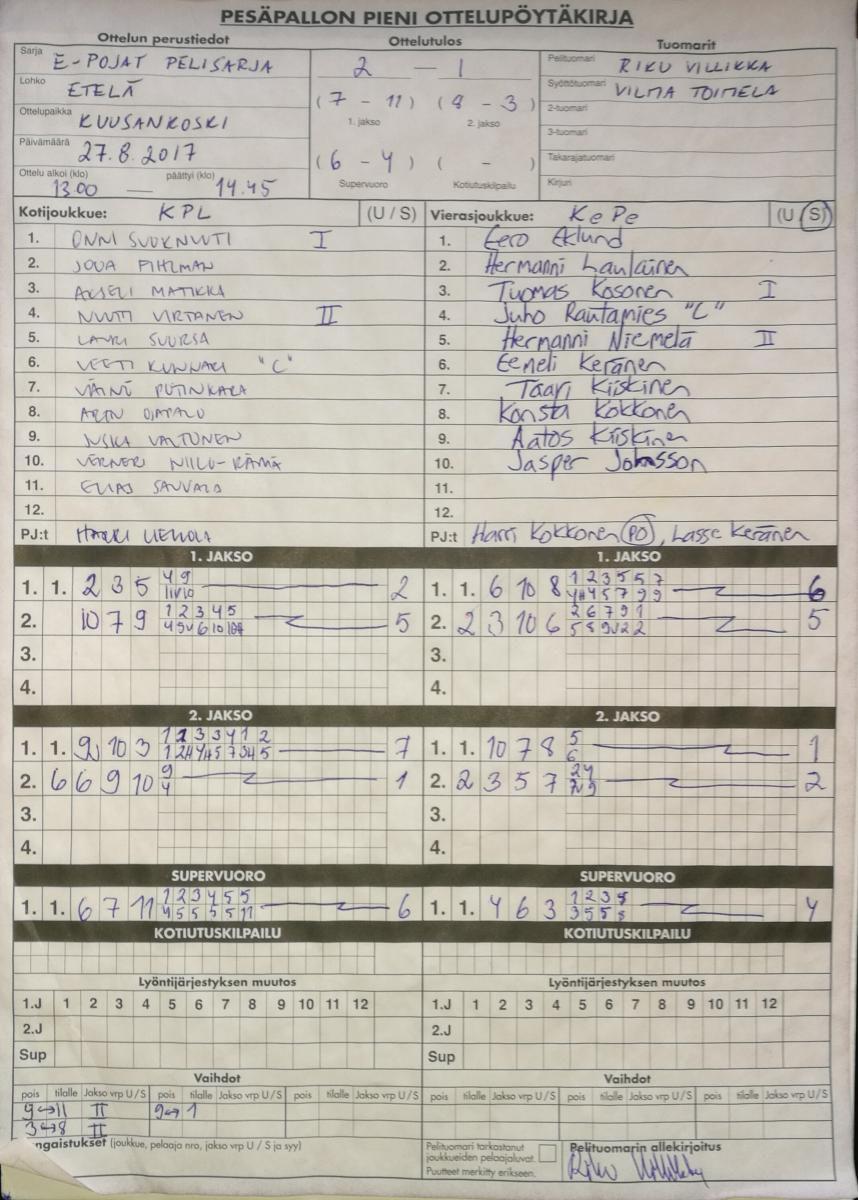 PESÄPALLON PIENI OTTELUPÖYTÄKIRJA
Ottelun perustiedot Ottelutulos Tuomarit
Sarja E-POJAT PELISARJA
Lohko ETELÄ
Ottelupaikka KUUSANKOSKI
Päivämäärä 27.8.2017
Ottelu alkoi (klo) päättyi (klo)
13.00 — 14.45
2 — 1
(7 - 11) (8 - 3)
1. jakso 2. jakso
(6 - 4) ( - )
Supervuoro Kotiutuskilpailu
Pelituomari RIKU VILLIKKA
Syöttötuomari VILMA TOIMELA
2-tuomari
3-tuomari
Takarajatuomari
Kirjuri
Kotijoukkue: KPL (U / S)
1. ONNI I
2. PIHLMAN
3. AKSELI MATIKKA
4. NUUTI VIRTANEN II
5. LAURI SUURSA
6. VEETI "C"
7. VÄINÖ PUTINKARA
8.
9. VALTONEN
10. VERNERI NIILO-RÄMÄ
11. ELIAS
12.
PJ:t
Vierasjoukkue: KePe (U / S)
1. Eero Eklund
2. Hermanni Laulainen
3. Tuomas Kosonen I
4. Juho Rautamies "C"
5. Hermanni Niemelä II
6. Eemeli Keränen
7. Taavi Kiiskinen
8. Konsta Kokkonen
9. Aatos Kiiskinen
10. Jasper Johansson
11.
12.
PJ:t Harri Kokkonen (PO), Lasse Keränen
1. JAKSO 1. JAKSO
1. 1. 2 3 5 4 9 2
2. 10 7 9 1 2 3 4 5 5
3.
4.
1. 1. 6 10 8 1 2 3 5 5 7 6
2. 2 3 10 6 2 6 7 9 1 5
3.
4.
2. JAKSO 2. JAKSO
1. 1. 10 3 7
2. 6 6 9 10 9 4 1
3.
4.
1. 1. 10 7 8 5 6 1
2. 2 3 5 7 2 4 2
3.
4.
SUPERVUORO SUPERVUORO
1. 1. 6 7 11 1 2 3 4 5 5 6
4 5 5 5 5 11
1. 1. 4 6 3 1 2 3 4
KOTIUTUSKILPAILU KOTIUTUSKILPAILU
Lyöntijärjestyksen muutos Lyöntijärjestyksen muutos
1.J 1 2 3 4 5 6 7 8 9 10 11 12 1.J 1 2 3 4 5 6 7 8 9 10 11 12
2.J 2.J
Sup Sup
Vaihdot Vaihdot
pois tilalle Jakso vrp U / S pois tilalle Jakso vrp U / S pois tilalle Jakso vrp U / S pois tilalle Jakso vrp U / S pois tilalle Jakso vrp U / S pois tilalle Jakso vrp U / S
9↔11 II 9↔1
3↔8 II
ngaistukset (joukkue, pelaaja nro, jakso vrp U / S ja syy)
Pelituomari tarkastanut
joukkueiden pelaajaluvat.
Puutteet merkitty erikseen.
Pelituomarin allekirjoitus